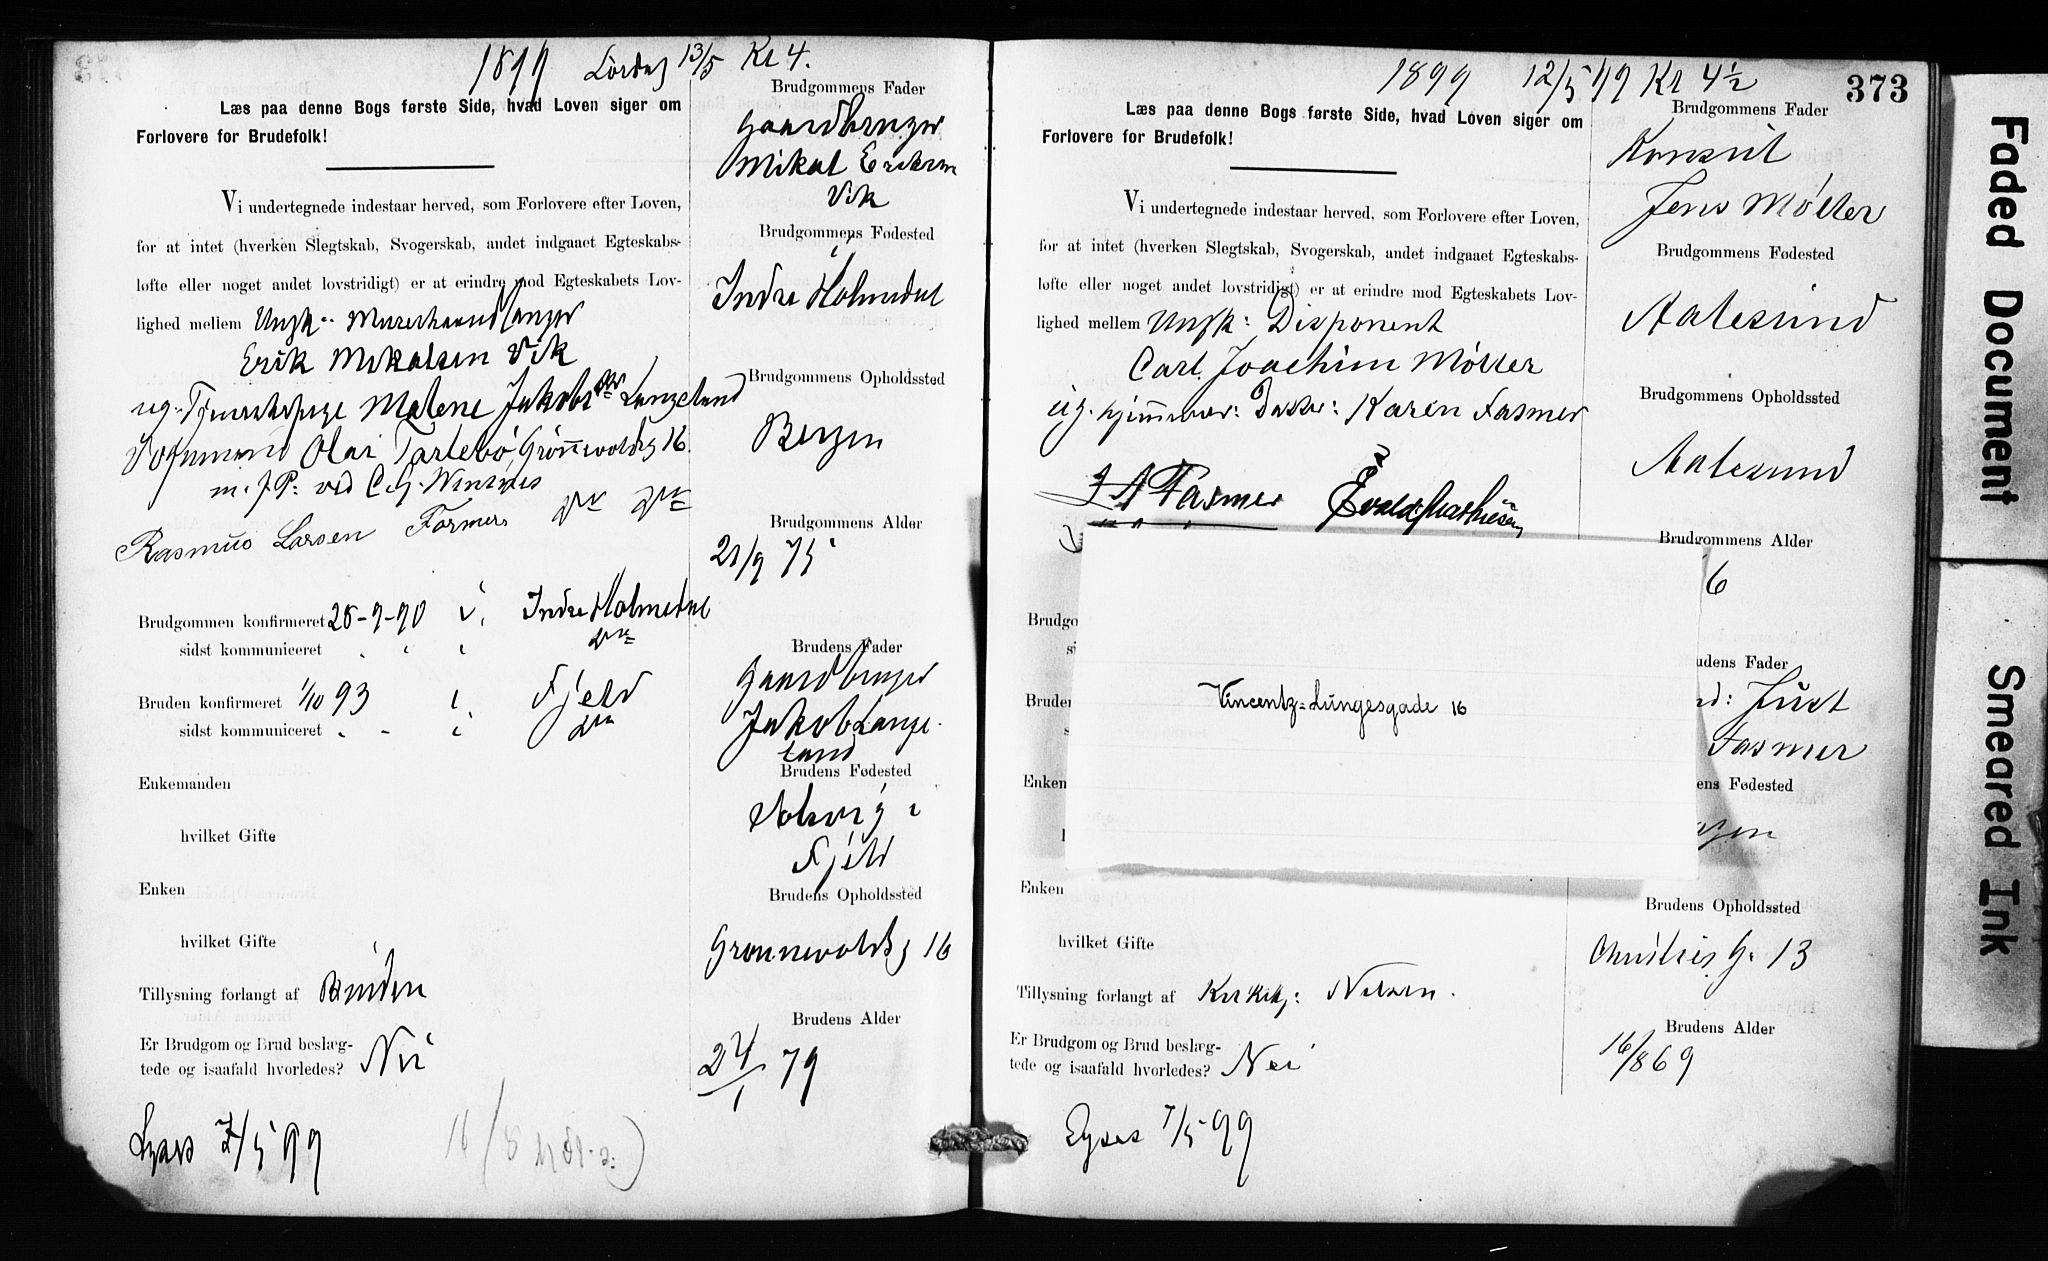 1899 Lørdag 13/5 Kl 4.
Læs paa denne Bogs første Side, hvad Loven siger om
Forlovere for Brudefolk!
Vi undertegnede indestaar herved, som Forlovere efter Loven,
for at intet (hverken Slegtskab, Svogerskab, andet indgaaet Egteskabs-
løfte eller noget andet lovstridigt) er at erindre mod Egteskabets Lov-
lighed mellem Ungk.
Erik Mikalsen Vik
ug. Malene Jakobsdtr Langeland
Olai Grönnevoldsg 16.
m. f. P. ved
Rasmus Larsen Farmers
Brudgommen konfirmeret 28-9-90 i Indre Holmedal
sidst kommuniceret
Bruden konfirmeret 1/10 93 i Fjeld
sidst kommuniceret
Enkemanden
hvilket Gifte
Enken
hvilket Gifte
Tillysning forlangt af Bruden
Er Brudgom og Brud beslæg-
tede og isaafald hvorledes? Nei
Lyses 7/5 99
Brudgommens Fader
Gaardbruger
Mikal Eriksen
Vik
Brudgommens Fødested
Indre Holmedal
Brudgommens Opholdssted
Bergen
Brudgommens Alder
21/9 75
Brudens Fader
Gaardbruger
Jakob Lange-
land
Brudens Fødested
i
Fjeld
Brudens Opholdssted
Grønnevoldsg 16
Brudens Alder
24/1 79
1899 12/5 99 Kl 4½
373
Læs paa denne Bogs første Side, hvad Loven siger om
Forlovere for Brudefolk!
Vi undertegnede indestaar herved, som Forlovere efter Loven,
for at intet (hverken Slegtskab, Svogerskab, andet indgaaet Egteskabs-
løfte eller noget andet lovstridigt) er at erindre mod Egteskabets Lov-
lighed mellem Ungk: Disponent
Carl Joachim Möller
ug. hjemmev: Datter: Karen Fasmer
J A Fasmer
Brudgo
si
Bruden
Vincentz=Lungesgade 16
Enkem
Enken
hvilket Gifte
Tillysning forlangt af Kirkebg: Nilsen.
Er Brudgom og Brud beslæg-
tede og isaafald hvorledes? Nei
Lyses 7/5 99
Brudgommens Fader
Konsul
Jens Möller
Brudgommens Fødested
Aalesund
Brudgommens Opholdssted
Aalesund
Brudgommens Alder
6
udens Fader
d: Just
Fasmer
ens Fødested
gen
Brudens Opholdssted
Christiesg. 13
Brudens Alder
16/8 69
Faded Document
Smeared Ink